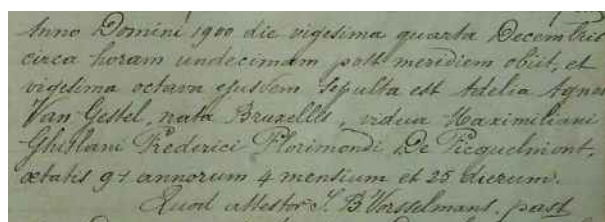 Anno Domini 1900 die vigesima quarta Decembris
circa horam undecimam post meridiem obiit, et
vigesima octava ejusdem sepulta est Adelia Agnes
Van Gestel, nata Bruxellis, vidua Maximiliani
Ghislani Frederici Florimondi De Ficquelmont,
ætatis 91 annorum 4 mensium et 25 dierum.
Quod attestor J. B. Vorsselmans. past